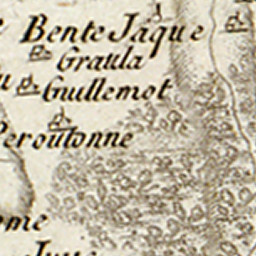 Bente Jaque
Graula
Guillemot
Peroutonne